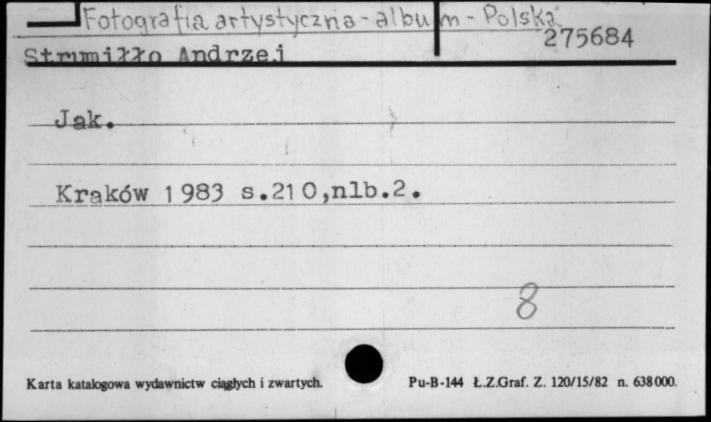 Fotografia artystyczna - album - Polska
275684
Strumiłło Andrzej
Jak.
Kraków 1983 s.210,nlb.2.
8
Karta katalogowa wydawnictw ciągłych i zwartych. Pu-B-144 Ł.Z.Graf. Z. 120/15/82 n. 638000.